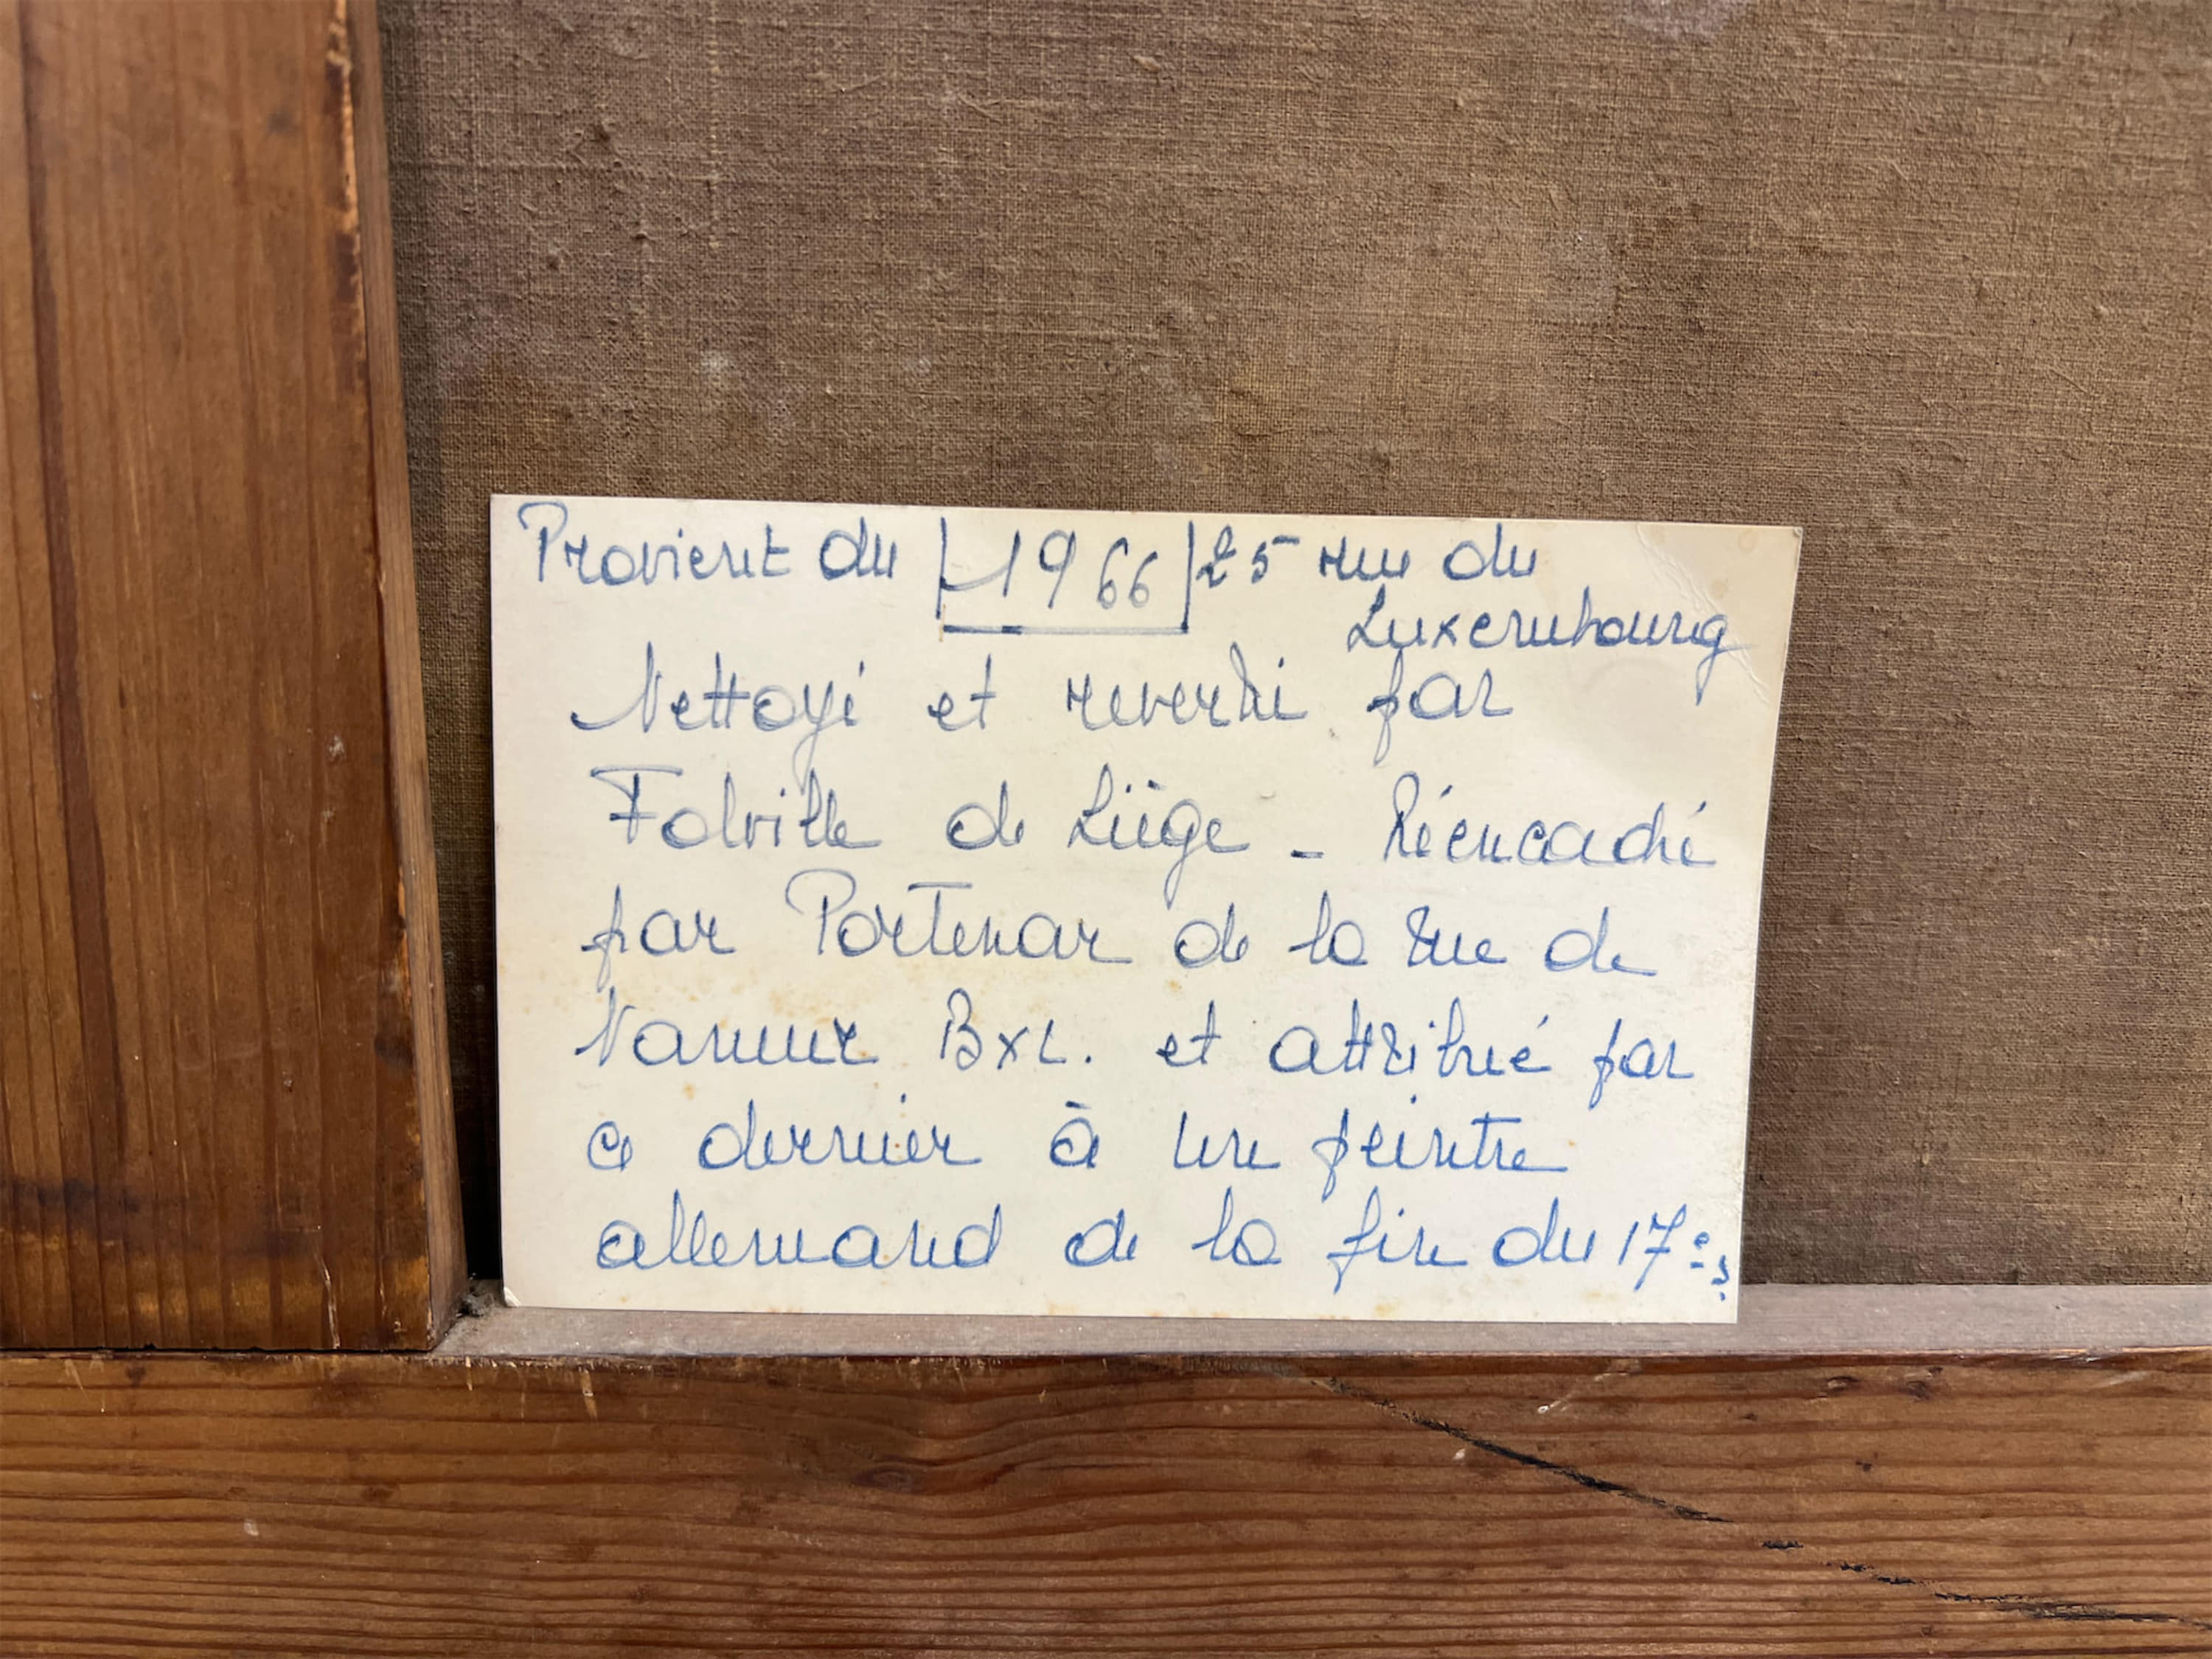 Provient du 1966 25 rue du
Luxembourg
Nettoyé et reverni par
Folville de Liège - Réencadré
par Portenar de la Rue de
Namur BXL. et attribué par
ce dernier à un peintre
allemand de la fin du 17e s